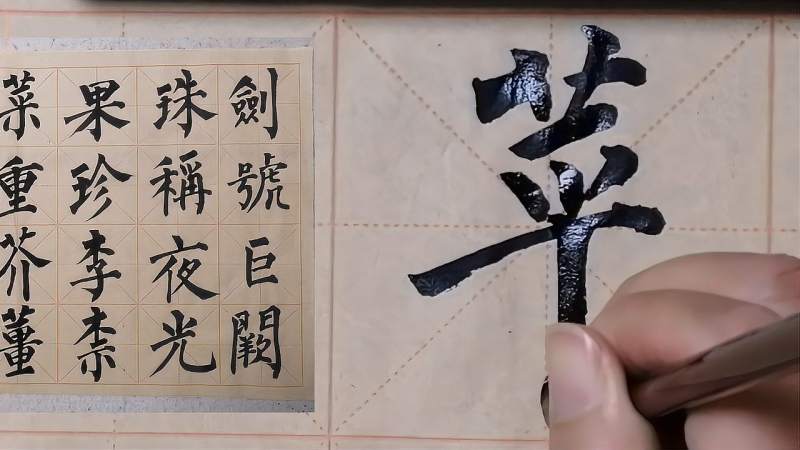 劍號巨闕
珠稱夜光
果珍李柰
菜重芥薑
苹